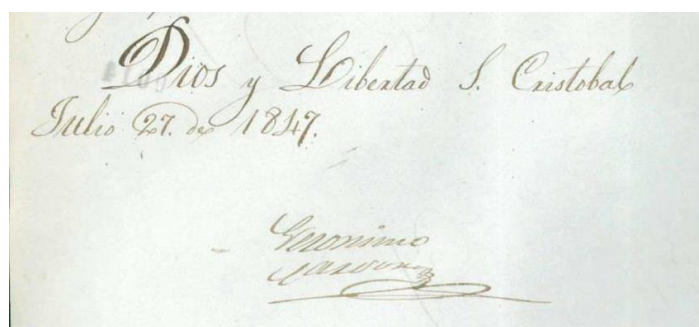 Dios y Libertad S. Cristobal
Julio 27. de 1847.
Geronimo